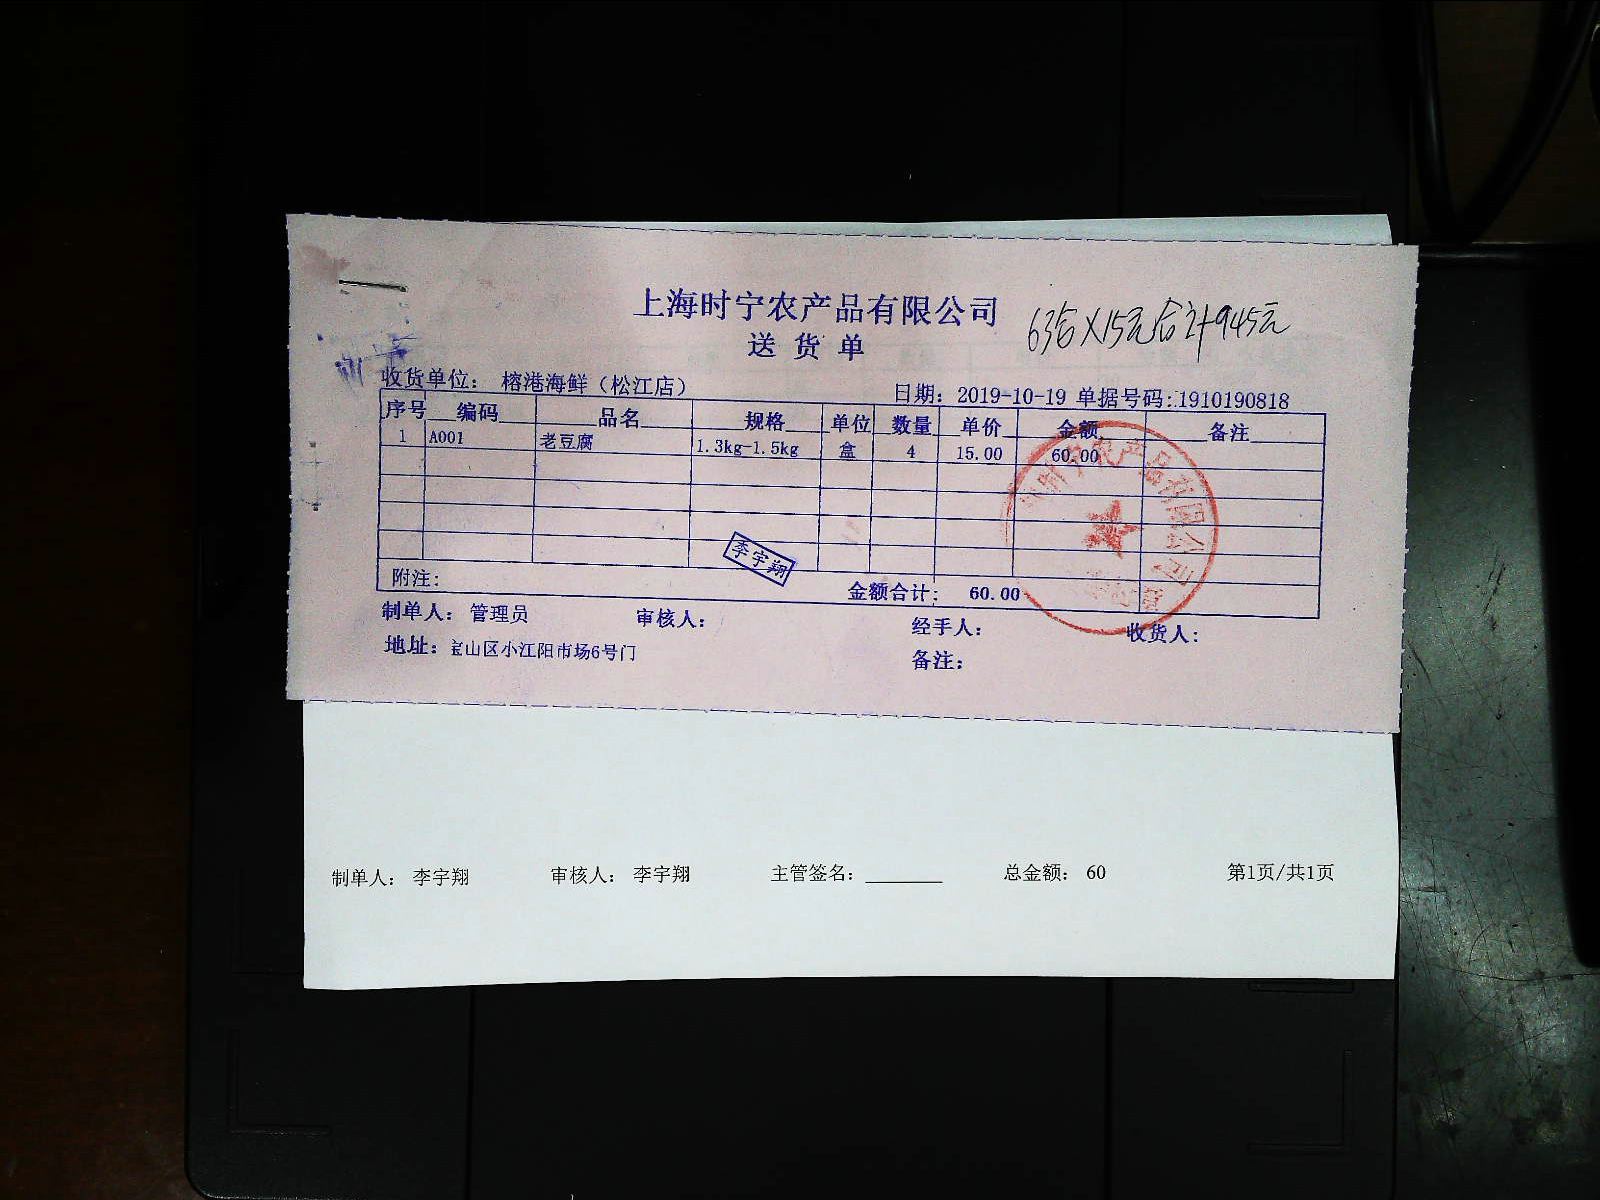 上海时宁农产品有限公司
63盒X15元合计945元
送货单
收货单位: 榕港海鲜（松江店） 日期: 2019-10-19 单据号码:1910190818
序号 编码 品名 规格 单位 数量 单价 金额 备注
1 A001 老豆腐 1.3kg-1.5kg 盒 4 15.00 60.00
时宁农产品有限公司
李宇翔
附注: 金额合计: 60.00
制单人: 管理员 审核人: 经手人: 收货人:
地址: 宝山区小江阳市场6号门 备注:
制单人: 李宇翔 审核人: 李宇翔 主管签名:________ 总金额: 60 第1页/共1页